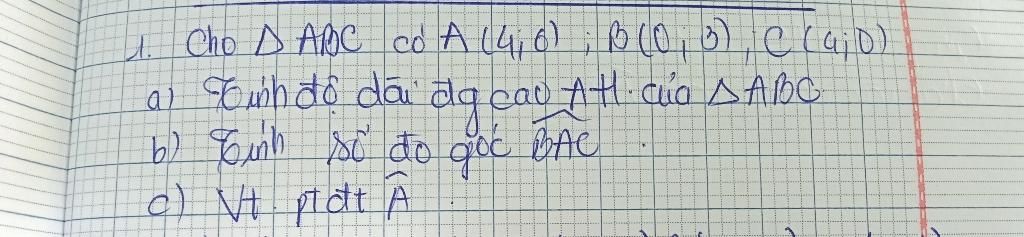 1. Cho Δ ABC có A (4; 6) ; B (0; 3) , C (4; 0)
a) Tính độ dài đg cao AH. của Δ ABC
b) Tính số đo góc \widehat{BAC}
c) Vt. pt đt \widehat{A}